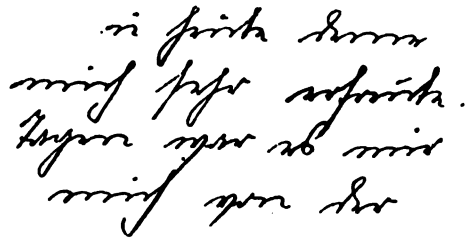 heute denn
mich sehr erfreute.
Tagen war es mir
mich von der